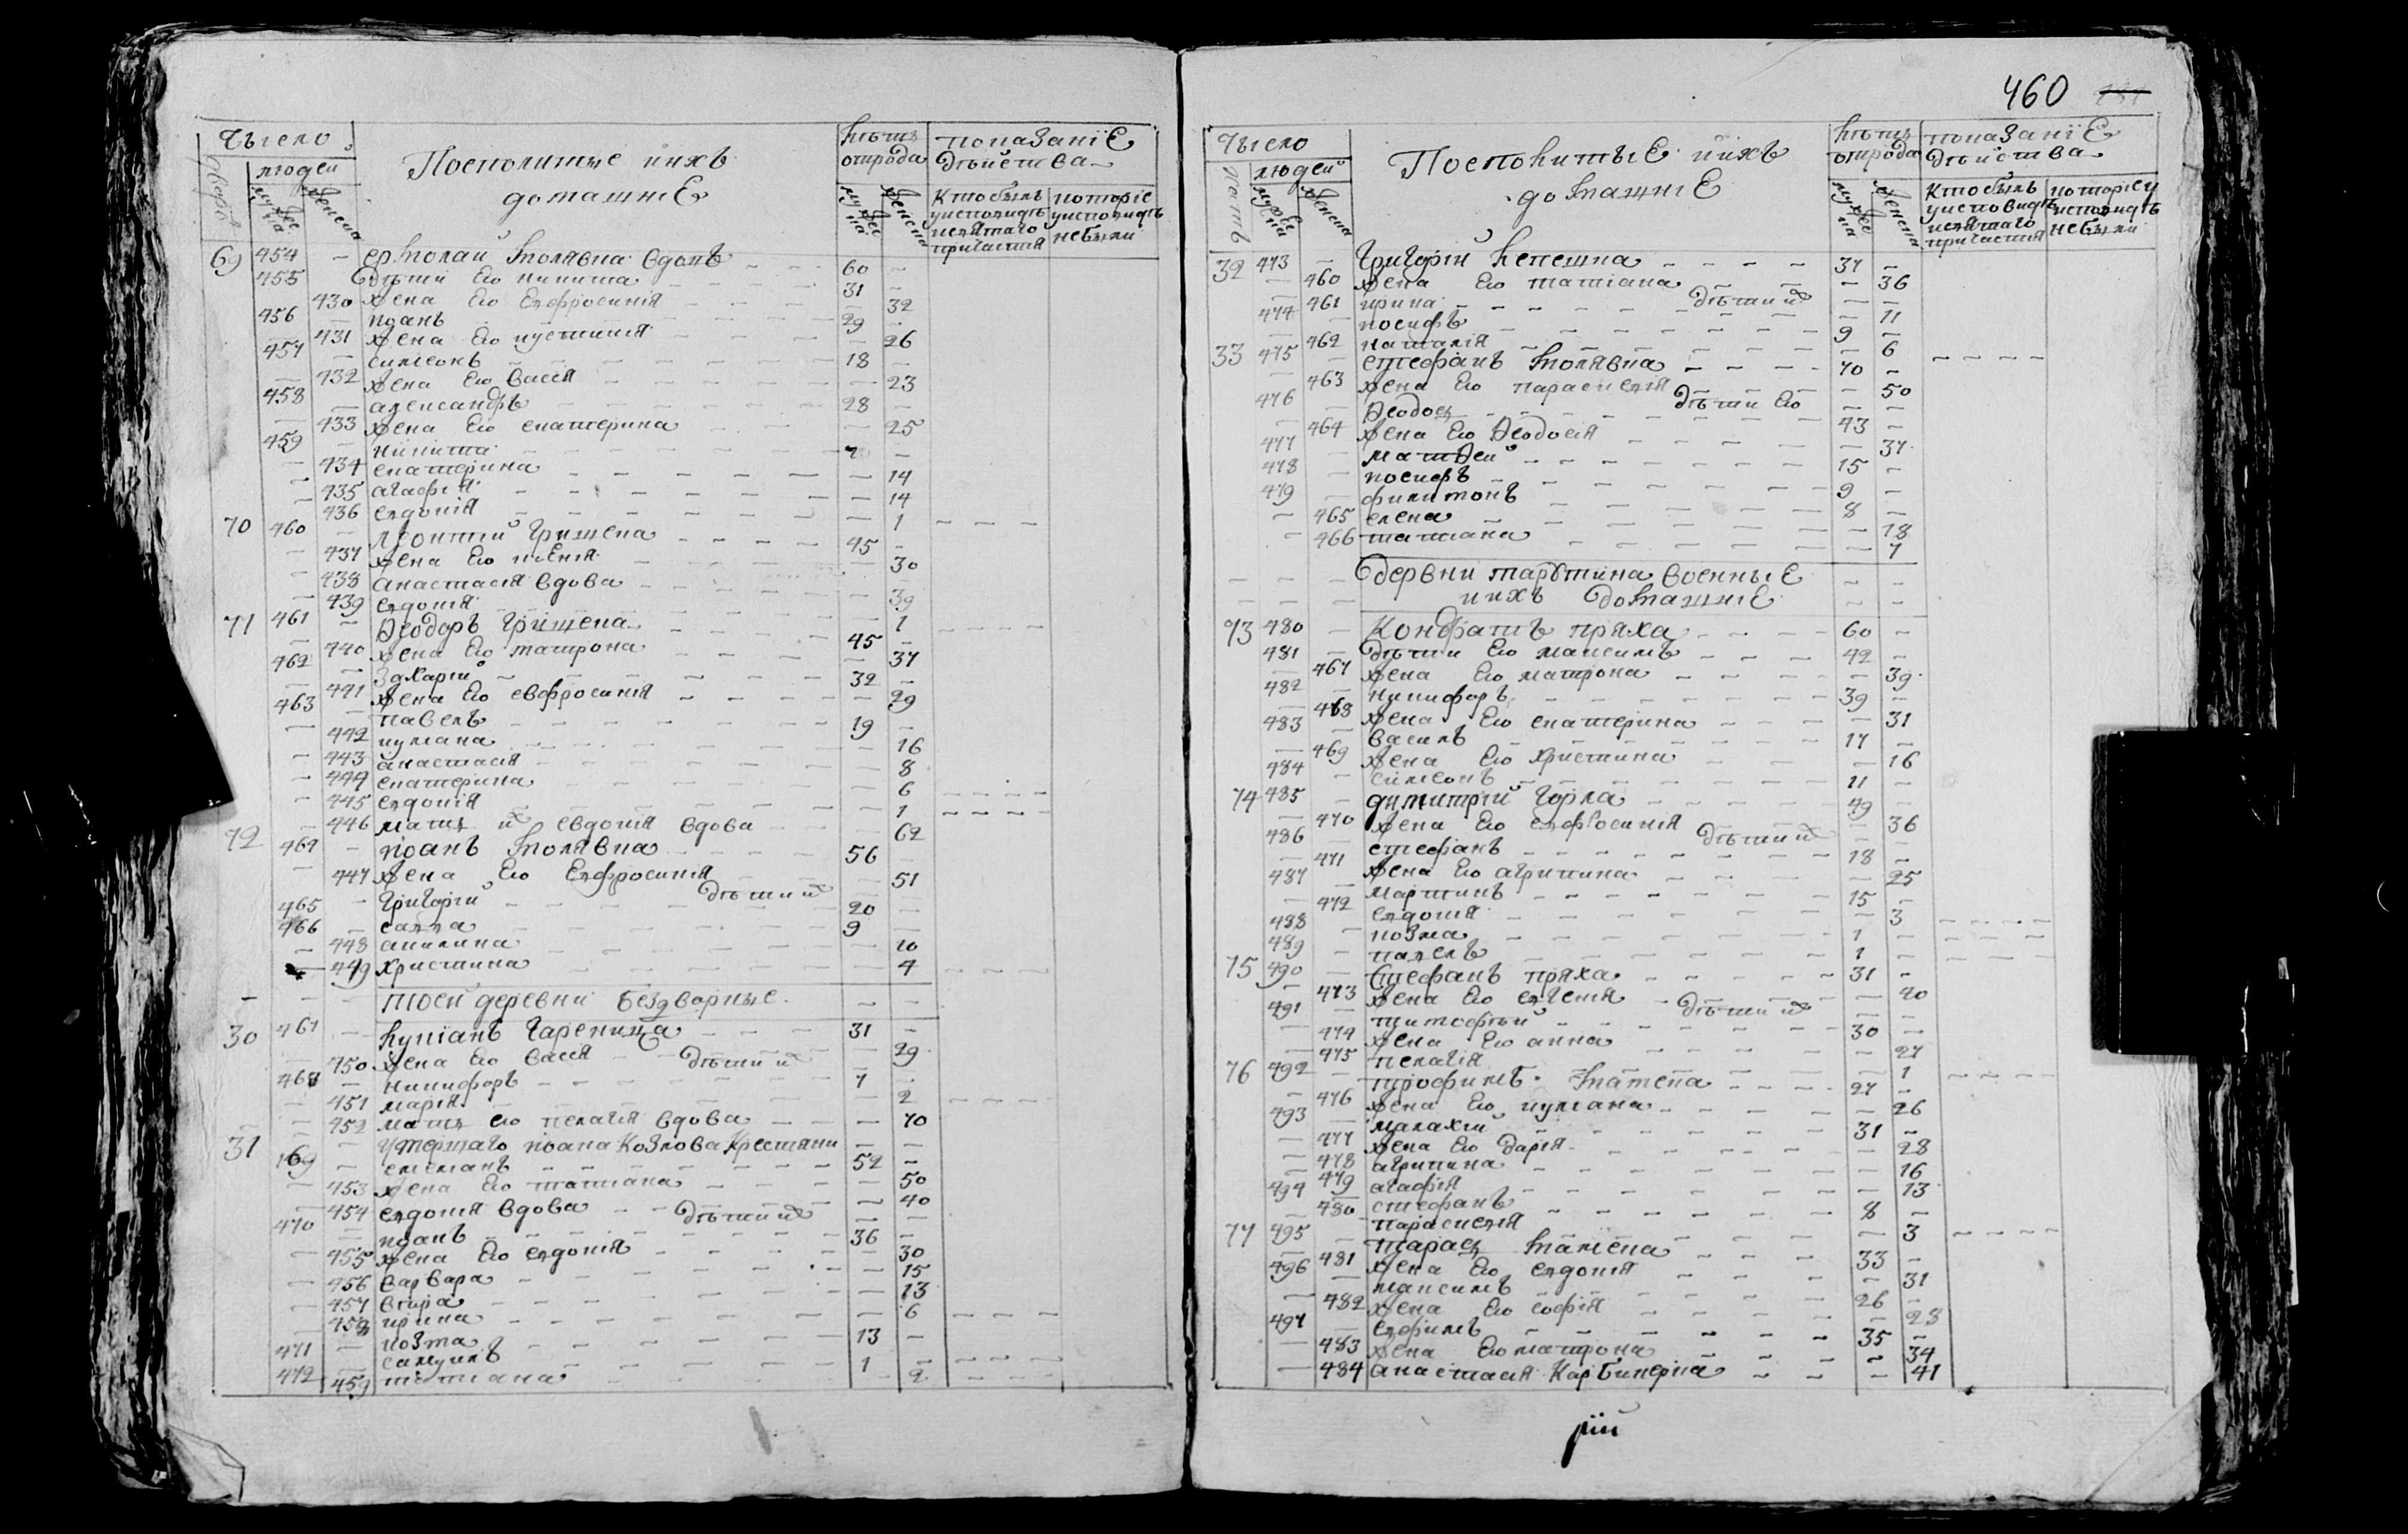 число
дворъ
людей
мужеска
женска
Посполитые и ихъ
домашние
лѣта
отрода
мужеска
женска
показанїе
дѣйства
кто былъ у исповиди и святаго причастия
которїе у исповиди не были
69 454 – ермолай молявка вдовъ – – 60 –
455 дѣти его никита – 31 –
430 жена его евфросиния – – 32
456 – иоанъ – 29 –
431 жена его иустиния – – 26
457 – симеонъ – 18 –
– 432 жена его васся – – 23
458 – александръ – 28 –
– 433 жена его екатерина – – 25
459 – никита –
– 434 екатерина – – 14
– 435 агафия – – 14
– 436 евдокия – – 1 – – –
70 460 – леонтий грищенко – 45 –
– 437 жена его ксения – – 30
– 438 анастасия вдова – – 39
– 439 евдокия – – 1 – – – –
71 461 – Ѳеодоръ грищенко – 45 –
– 440 жена его матрона – – 37
462 – захарий – 32 –
– 441 жена его евфросиния – – 29
463 – павелъ – 19 –
– 442 иулиана – – 16
– 443 анастасия – – 8
– 444 екатерина – – 6 – – – –
– 445 евдокия – – 1 – – – –
– 446 мати их евдокия вдова – 62
72 464 – иоанъ молявка – 56 –
– 447 жена его евфросиния – – 51
дѣти их
465 – григорий – 20 –
466 – савва – 9 –
– 448 акилина – – 10
– 449 христина – – 4 – – –
– – – тоей деревни бездворные – –
30 467 – купіанъ гареница – 31 –
– 450 жена его васся – дѣти их – 29
468 – никифоръ – 7 –
– 451 мария – – 2 – – – –
– 452 мати его пелагия вдова – – 70
31 – – умершаго иоана козлова крестяни – –
469 – емелианъ – 52 –
– 453 жена его татиана – – 50
– 454 евдокия вдова – – 40
дѣти их
470 – иоанъ – 36 –
– 455 жена его евдокия – – 30
– 456 варвара – – 15
– 457 вѣра – – 13
– 458 ирина – – 6 – – –
471 – козма – 13 –
472 – самуилъ – 1 – – – –
– 459 татиана – – 2 – – –
460
число
хатъ
людей
мужеска
женска
Посполитые и ихъ
домашние
лѣта
отрода
мужеска
женска
показанїе
дѣйства
кто былъ у исповидѣ и святаго причастия
которїе у исповидѣ не были
32 473 – григорий лепешка – 37 –
– 460 жена его татиана – – 36
– 461 ирина – дѣти их – 11
474 – иосифъ – 9 –
– 462 наталия – – 6
33 475 – стефанъ молявка – 70 – – – – –
– 463 жена его параскевия – – 50
дѣти его
476 – Ѳеодосъ – 43 –
– 464 жена его Ѳеодосия – – 37
477 – матѲей – 15 –
478 – иосифъ – 9 –
479 – филимонъ – 8 –
– 465 елена – – 18
– 466 татиана – – 7
– – – деревни тарутина военные – –
– – – и ихъ домашние – –
73 480 – кондратъ пряха – 60 –
481 – дѣти его максимъ – 42 –
– 467 жена его матрона – – 39
482 – никифоръ – 39 –
– 468 жена его екатерина – – 31
483 – василъ – 17 –
– 469 жена его христина – – 16
484 – симеонъ – 11 –
74 485 – димитрий горла – 49 –
– 470 жена его евфросиния – – 36
дѣти их
486 – стефанъ – 18 –
– 471 жена его агрипина – – 25
487 – мартинъ – 15 –
– 472 евдокия – – 3 – – – –
488 – козма – 1 – – – –
489 – павелъ – 1 – – – –
75 490 – стефанъ пряха – 31 –
– 473 жена его евгения – – 40
дѣти их
491 – тимофѣй – 30 –
– 474 жена его анна – – 27
– 475 пелагия – – 1 – – – –
76 492 – трофимъ – 27 –
– 476 жена его иулиана – – 26
493 – малахий – 31 –
– 477 жена его дария – – 28
– 478 агрипина – – 16
– 479 агафия – – 13
494 – стефанъ – 8 –
– 480 параскевия – – 3 – – – –
77 495 – тарасъ – 33 –
– 481 жена его евдокия – – 31
496 – максимъ – 26 –
– 482 жена его софия – – 28
497 – евфимъ – 35 –
– 483 жена его матрона – – 34
– 484 анастасия – – 41
рїй